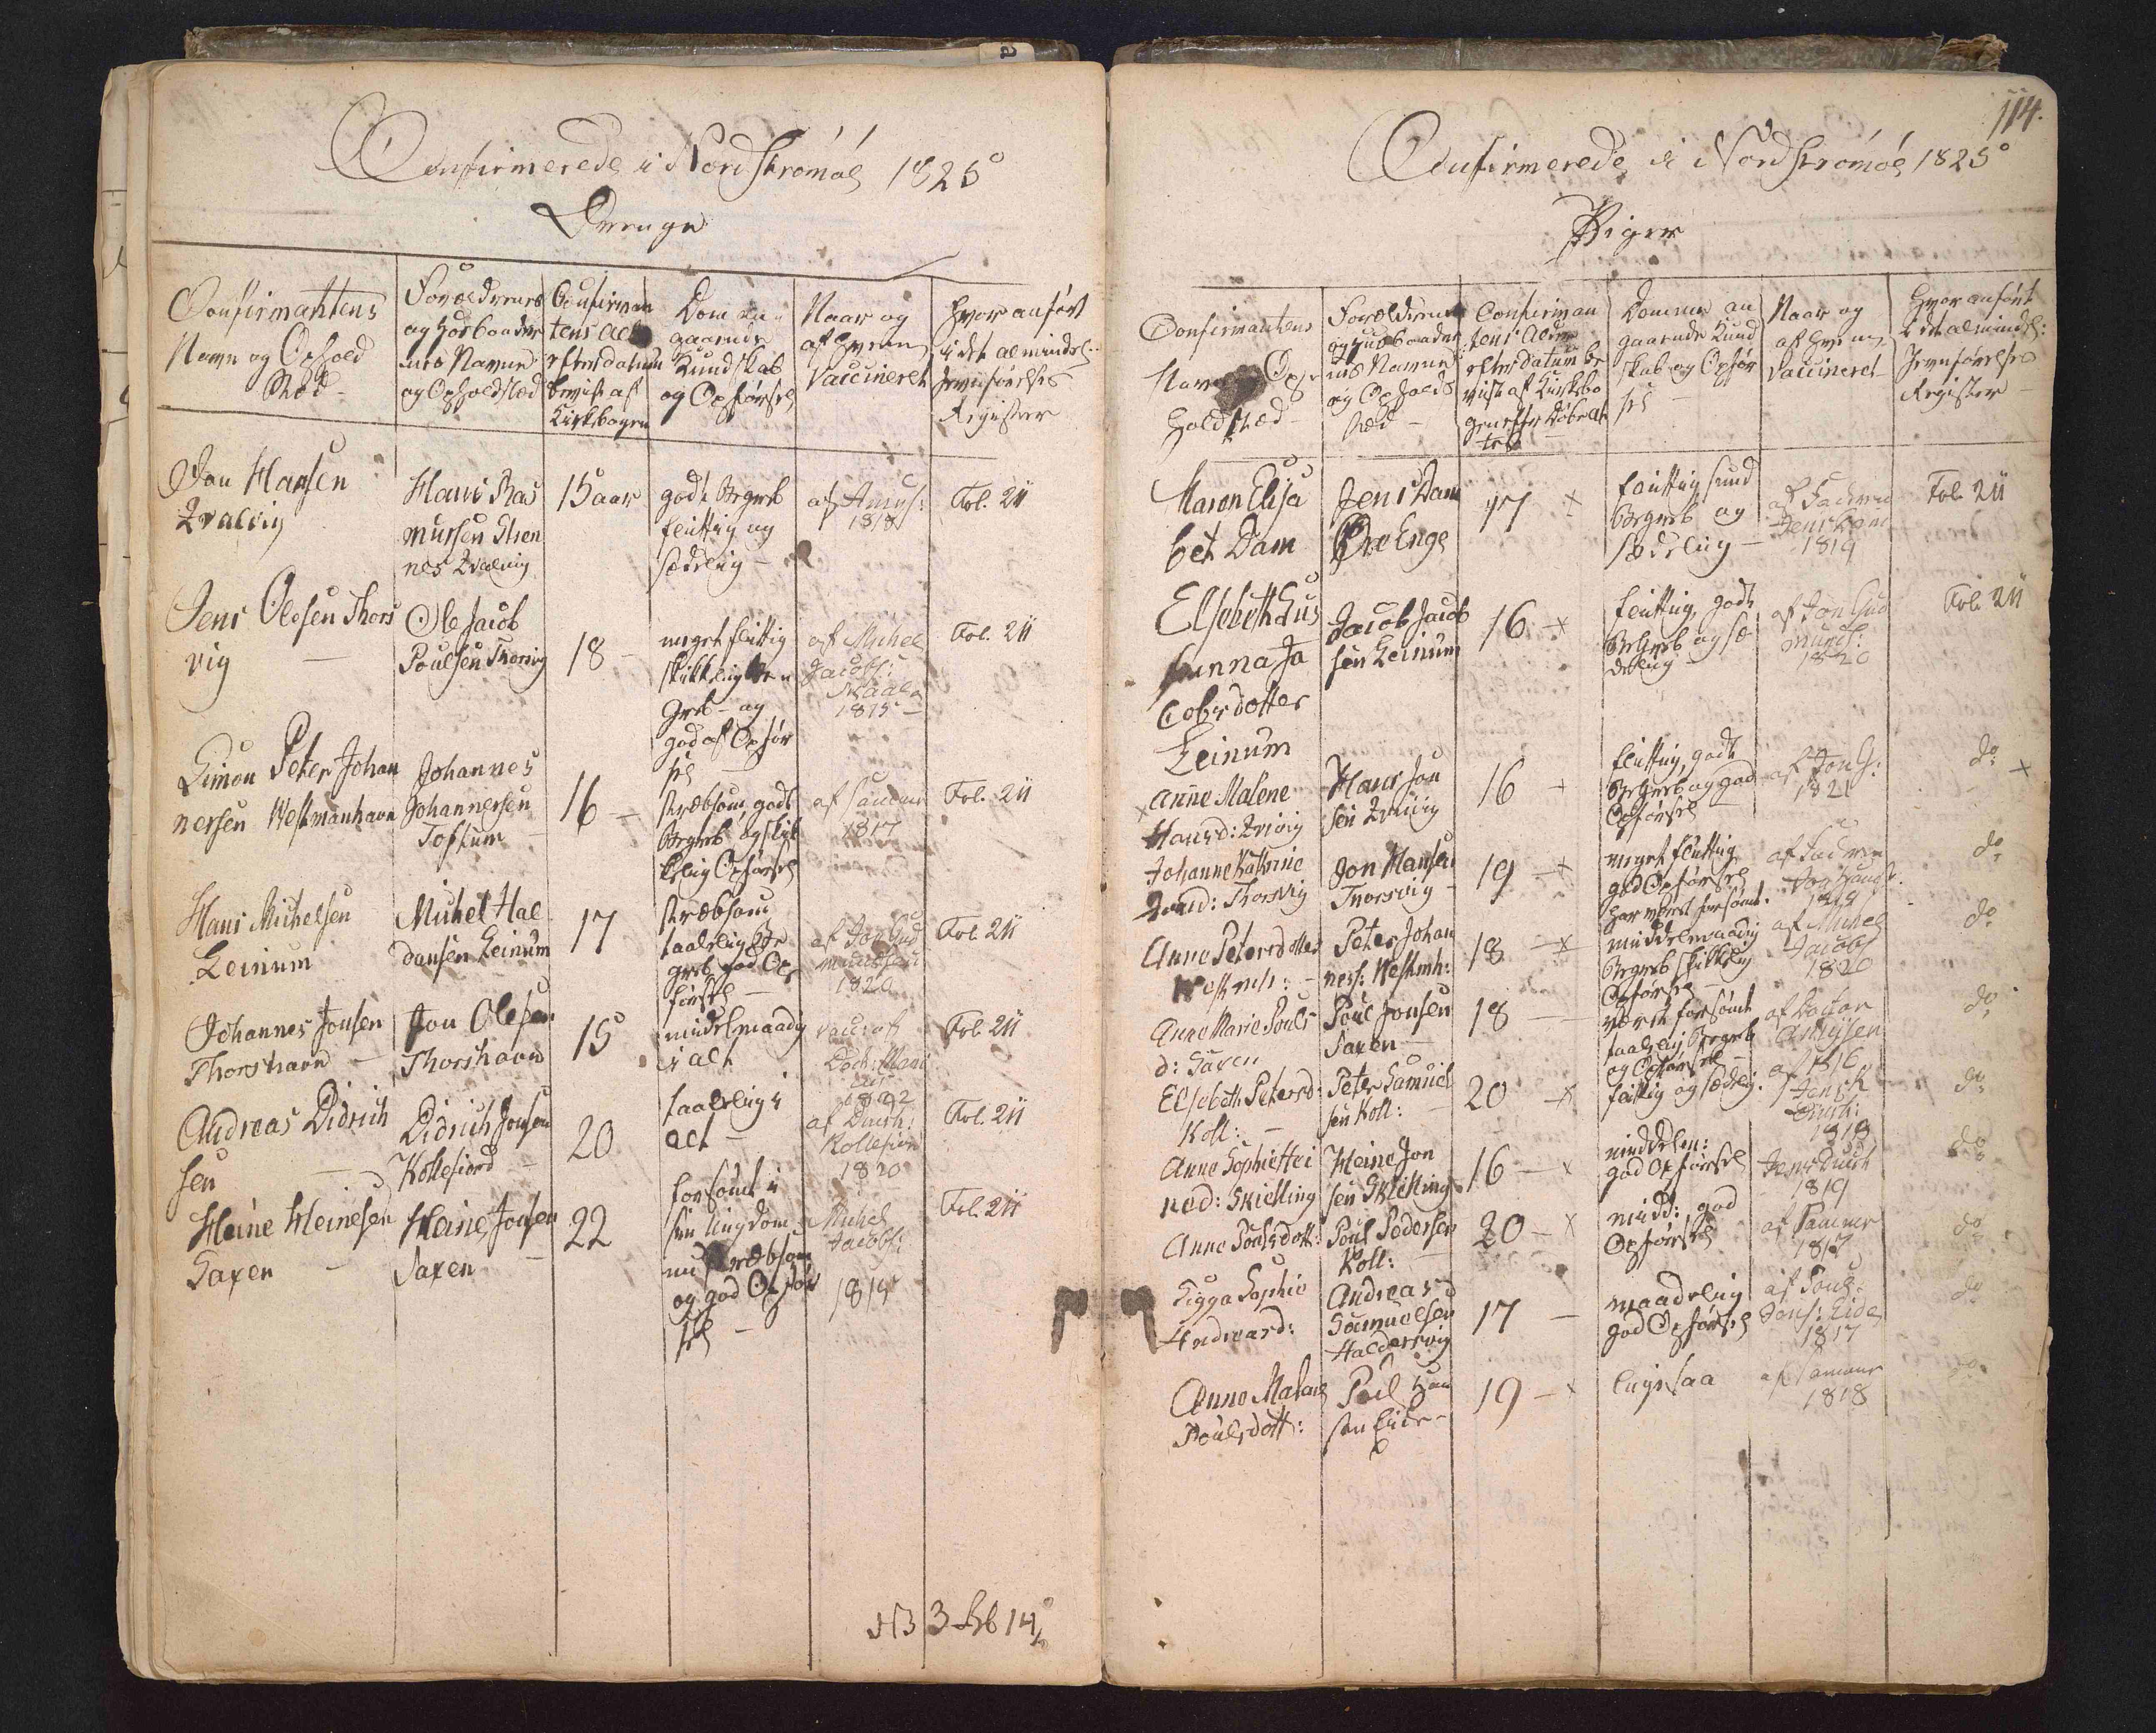 Confirmerede i Nordstrømøe 1825
Drenge
Confirmantens
Navn og Ophold
Sted
Forældrenes
og Hosbonder
nes Navne
og Opholdsted
Confirman
tens
efter datum
beviist af
Kirkebogen
Dom an
gaaende
Kundskab
og Opførsel
Naar og
af hvem
Vaccineret
Hvor anført
i det almindel:
Jevnførelses
Register
Jon Hansen
Qvalvig
Hans Ras
mussen
nes Qvalvig
15 aar
godt Begreb
flittig og
sædelig
1818
Fol. 211
Jens Olesen Thors
vig
Ole Jacob
Poulsen Thorsvig
18
meget flittig
skikkelig Be
greb og
god af Opfør
sel
af Michel
Jacobs:
1815
Fol. 211
Simon Peter Johan
nesen Westmanhavn
Johannes
Johannesen
Toftum
16
stræbsom godt
Begreb og skik
kelig Opførsel
af samme
1817
Fol. 211
Hans Michelsen
Leinum
Michel Hal
dansen Leinum
17
stræbsom
taalelig Be
greb god Op
førsel
af Jon Gud
mundsen
1820
Fol. 211
Johannes Jonsen
Thorshavn
Jon Olesen
Thorshavn
15
middelmaadig
i alt
vacc: af
Doct:
1822
Fol. 211
Andreas Didrich
sen
Didrich Jonsen
Kollefiord
20
taalelig i
alt
af
Kollefiord
1820
Fol. 211
Heine Heinesen
Saxen
Heine Jonsen
Saxen
22
forsømt i
sin Ungdom
nu stræbsom
og god Opfør
sel
Michel
Jacobs:
Fol. 211
NB 3
14
114.
Confirmerede i Nordstrømøe 1825
Piger
Confirmantens
Navn Op
hold Sted
Forældrenes
og Husbonder
nes Navne
og Opholds
sted
Confirman
tens Alder
efter datum be
viist af Kirkebo
gen
Dommen an
gaaende Kund
skab og Opfør
sel
Naar og
af hvem
Vaccineret
Hvor anført
i det almindel:
Jevnførelses
Register
Maren Elisa
bet Dam
Jens Dam
Øre Enge
17 x
flittig
Begreb og
sædelig
1819
Fol. 211
Elsebeth Sus
hanna Ja
cobsdotter
Leinum
Jacob Jacob
sen Leinum
16 x
flittig, godt
Begreb og sæ
delig
af Jon Gud
munds:
1820
Fol. 211
Anne Malene
Hansd: Qvivig
Hans Jon
sen Qvivig
16
flittig, godt
Begreb og god
Opførsel
af Jon G:
1821
do x
Johanne Kathrine
Jonsd: Thorsvig
Jon Hansen
Thorsvig
19 x
meget flittig
god Opførsel
har været forsømt.
do
Anne Petersdotter
Westmh:
Peter Johan
nes: Westmh:
18 x
middelmaadig
Begreb skikkelig
Opførsel
af Michel
Jacobs
1820
do
Anne Marie Pouls
d: Saxen
Poul Jonsen
Saxen
18
været forsømt
taalelig Begreb
og Opførsel
af Doctor
1816
do
Elsebeth Petersd:
Koll:
Peter Samuel
sen Koll:
20 x
flittig og sædelig.
af
Jens K
1818
do
Anne Sophie Hei
nesd: Skielling
Heine Jon
sen Skielling
16 x
middelm:
god Opførsel
1819
do
Anne Poulsdott:
Poul Pedersen
Koll:
20 x
midd: god
Opførsel
af samme
1817
do
Sigga Sophie
Andreasd:
Andreas
Samuelsen
Haldersvig
17
maadelig
god Opførsel
af Poul
Jons: Eide
1817
do
Anne Malene
Poulsdott:
Poul
sen Eide
19 x
ligesaa
af samme
1818
do